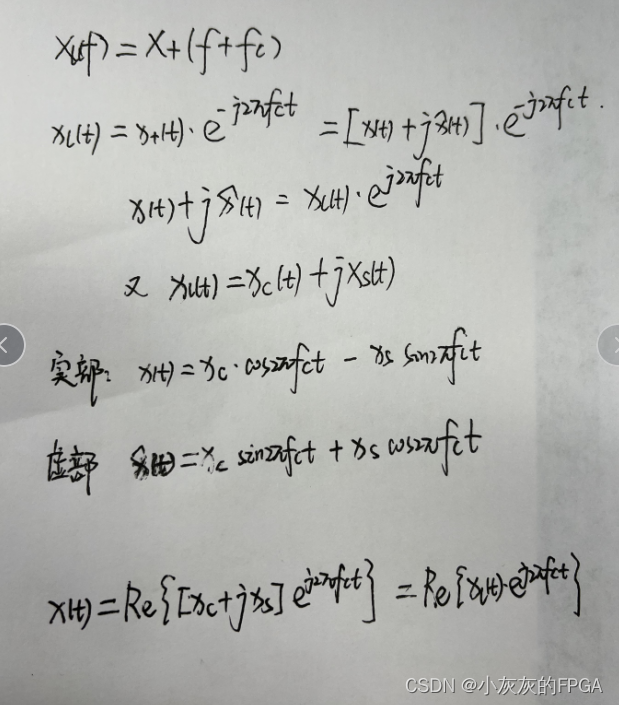 X_l(f) = X+(f+fc)
x_l(t) = x+(t)·e^{-j2πfct} = [x(t)+jx̂(t)]·e^{-j2πfct}.
x(t)+jx̂(t) = x_l(t)·e^{j2πfct}
又 x_l(t) = x_c(t)+jx_s(t)
实部: x(t) = x_c·cos2πfct − x_s sin2πfct
虚部 x̂(t) = x_c sin2πfct + x_s cos2πfct
x(t) = Re{[x_c+jx_s] e^{j2πfct}} = Re{x_l(t)·e^{j2πfct}}
CSDN @小灰灰的FPGA